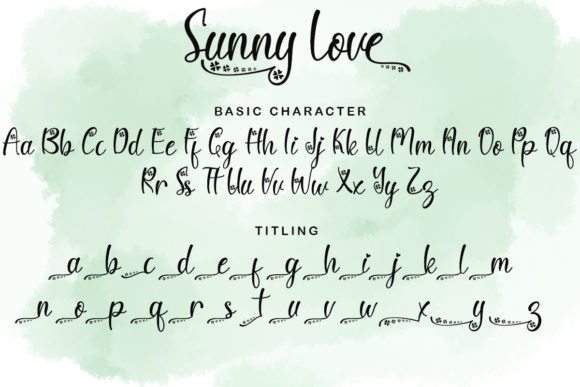 Sunny Love
BASIC CHARACTER
Aa Bb Cc Dd Ee Ff Gg Hh Ii Jj Kk Ll Mm Nn Oo Pp Qq
Rr Ss Tt Uu Vv Ww Xx Yy Zz
TITLING
a b c d e f g h i j k l m
n o p q r s t u v w x y z